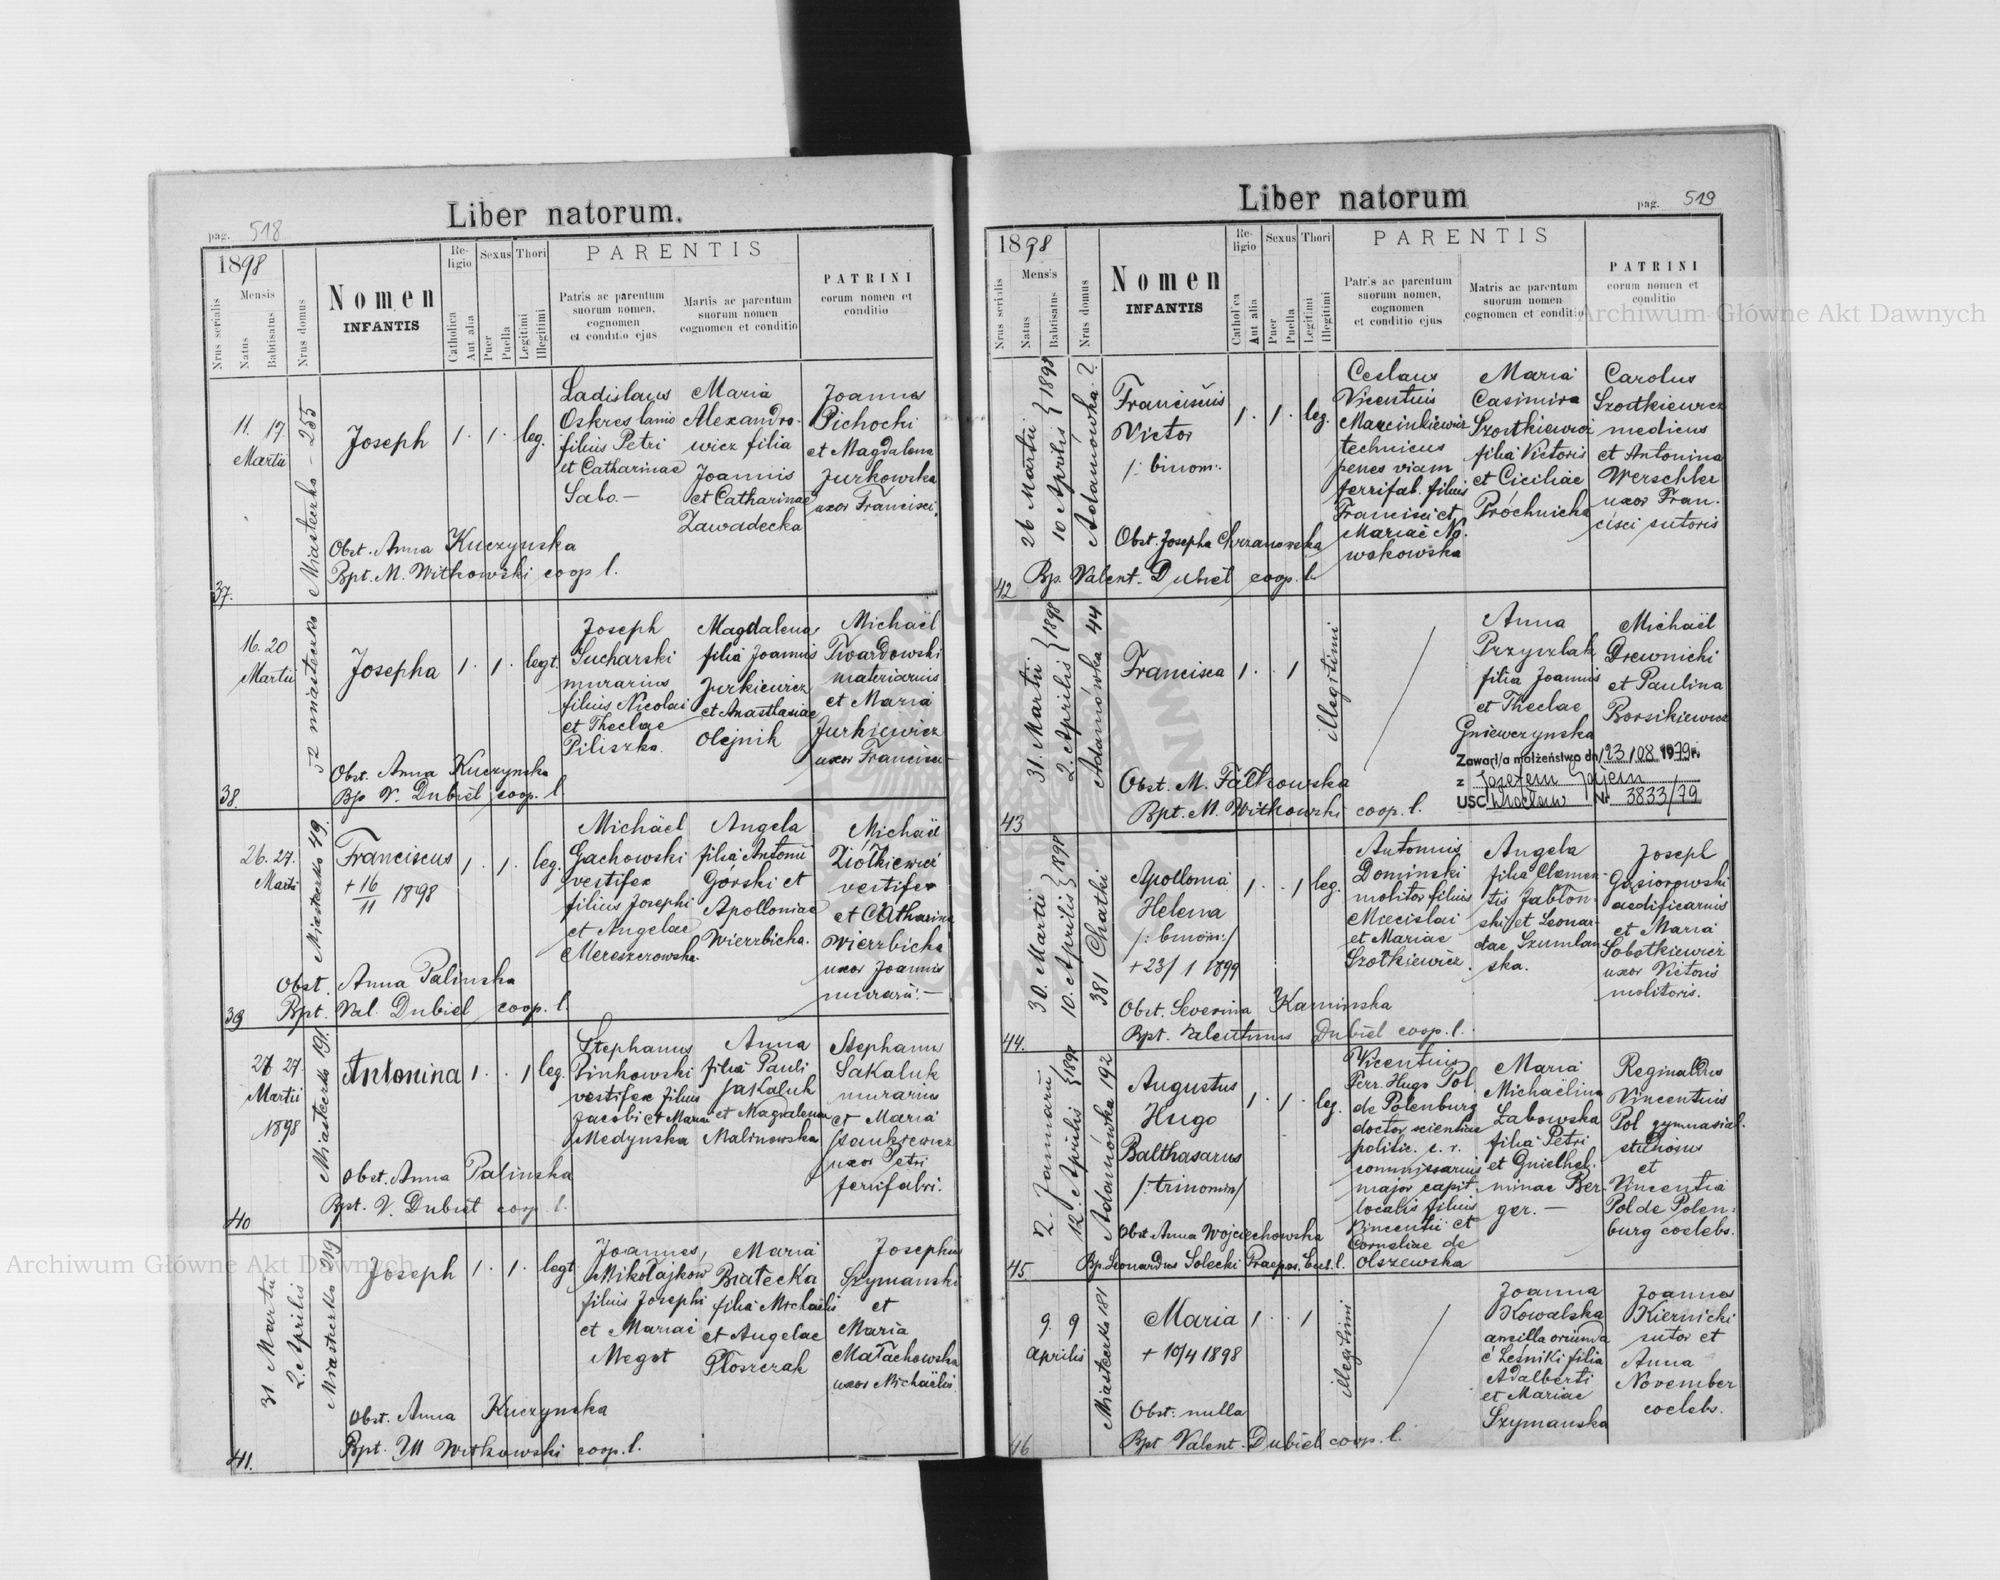 Liber natorum.
pag. 518
1898
Nrus serialis
Mensis
Natus
Babtisatus
Nrus domus
Nomen
INFANTIS
Religio
Catholica
Aut alia
Sexus
Puer
Puella
Thori
Legitimi
Illegitimi
PARENTIS
Patris ac parentum
suorum nomen,
cognomen
et conditio ejus
Martis ac parentum
suorum nomen
cognomen et conditio
PATRINI
eorum nomen et
conditio
37.
11. 17
Martii
Miasteczko - 255
Joseph
1. 1. leg.
Ladislaus
filius Petri
et Catharinae
Sabo.-
Maria
Alexandro-
wicz filia
Joannis
et Catharinae
Zawadecka
Joannes
Pichocki
et Magdalena
Jurkowska
uxor Francisci.
Obst. Anna Kuczynska
Bpt. M. Witkowski coop l.
38.
16. 20
Martii
52 miasteczko
Josepha
1. 1. legt.
Joseph
Sucharski
murarius
filius Nicolai
et Theclae
Piliszko.
Magdalena
filia Joannis
Jurkiewicz
et Anastasiae
Olejnik
Michaël
Twardowski
materiarius
et Maria
Jurkiewicz
uxor Francisci
Obst. Anna Kuczynska
Bp V. Dubiel coop. l
39
26. 27.
Martii
Miasteczko 49.
Franciscus
+ 16/11 1898
1. 1. leg.
Michäel
Gachowski
vestifex
filius Josephi
et Angelae
Mereszerowska.
Angela
filia Antonii
Gorski et
Apolloniae
Wierzbicka.
Michaël
Ziółkiewicz
vestifex
et Catharina
Wierzbicka
uxor Joannis
murarii.-
Obst. Anna Palinska
Bpt. Val. Dubiel coop. l.
40
27 27.
Martii
1898
Miasteczko 191.
Antonina
1. 1 leg.
Stephanus
Pinkowski
vestifex filius
Jacobi et Mariae
Medynska
Anna
filia Pauli
Jakaluk
et Magdalena
Malinowska
Stephanus
Sakaluk
murarius
et Maria
uxor Petri
ferrifabri.
Obst. Anna Palinska
Bpt. V. Dubiel coop. l.
41.
31 Martii
2. Aprilis
Miasteczko 219
Joseph
1. 1. legt
Joannes,
Mikołajków
filius Josephi
et Mariae
Megot
Maria
Białecka
filia Michaëlis
et Angelae
Płoszczak
Josephus
Szymanski
et
Maria
Małachowska
uxor Michaëlis
Obst. Anna Kuczynska
Bpt. M Witkowski coop. l.
Liber natorum
pag. 519
1898
Nrus serialis
Mensis
Natus
Babtisatus
Nrus domus
Nomen
INFANTIS
Religio
Catholica
Aut alia
Sexus
Puer
Puella
Thori
Legitimi
Illegitimi
PARENTIS
Patris ac parentum
suorum nomen,
cognomen
et conditio ejus
Matris ac parentum
suorum nomen
cognomen et conditio
PATRINI
eorum nomen et
conditio
42
26 Martii
10 Aprilis } 1898
Adamówka 2
Franciscus
Victor
/: binom:.
1. 1. leg.
Ceslaus
Vicentius
Marcinkiewicz
technicus
penes viam
ferrifab. filius
Francisci et
Mariae No-
wakowska
Maria
Casimira
Szostkiewicz
filia Victoris
et Ciciliae
Próchnicka
Carolus
Szostkiewicz
medicus
et Antonina
Werschler
uxor Fran-
cisci sutoris
Obst. Josepha Chrzanowska
Bp. Valent. Dubiel coop. l.
43
31. Martii
2. Aprilis } 1898
Adamówka 44
Francisca
1. 1
illegitimi
Anna
Przyszlak
filia Joannis
et Theclae
Gniewczynska
Michaël
Drewnicki
et Paulina
Borsikiewicz
Zawarł/a małżeństwo dn. 23/08 1979 r.
z Józefem Gajem
USC Wrocław Nr 3833/79
Obst. M. Fałkowska
Bpt. M. Witkowski coop. l.
44.
30. Martii
10. Aprilis } 1898
381 Chatki
Apollonia
Helena
/: binom:/
+ 23/1 1899
1. 1 leg.
Antonius
Dominski
molitor filius
Miecislai
et Mariae
Szotkiewicz.
Angela
filia Clemen-
tis Jabłon-
ski et Leonar-
dae Szumlan-
ska.
Joseph
Gąsiorowski
aedificarius
et Maria
Sobotkiewicz
uxor Victoris
molitoris.
Obst. Severina Kaminska
Bpt. Valentinus Dubiel coop. l.
45
2. Januarii
12. Aprilis } 1898
Adamówka 192
Augustus
Hugo
Balthasarus
/: trinomin/
1. 1. leg.
Vicentius
Ferr. Hugo Pol
de Polenburg
doctor scientiae
politic. c. r.
commissarius
major capit.
localis filius
Vincentii et
Corneliae de
Olszewska
Maria
Michaëlina
Łabowska
filia Petri
et Guielhel-
minae Ber-
ger.-
Reginaldus
Vincentius
Pol gymnasial.
studiosus
et
Vincentia
Pol de Polen-
burg coelebs.
Obst Anna Wojciechowska
Bp. Leonardus Solecki Praepos. Eccl. l.
46
9. 9
Aprilis
Miasteczko 181
Maria
+ 10/4 1898
1. 1
illegitimi
Joanna
Kowalska
ancilla oriunda
é Leśniki filia
Adalberti
et Mariae
Szymanska
Joannes
Kiernicki
sutor et
Anna
November
coelebs.
Obst: nulla
Bpt Valent. Dubiel coop. l.
Archiwum Główne Akt Dawnych
Archiwum Główne Akt Dawnych